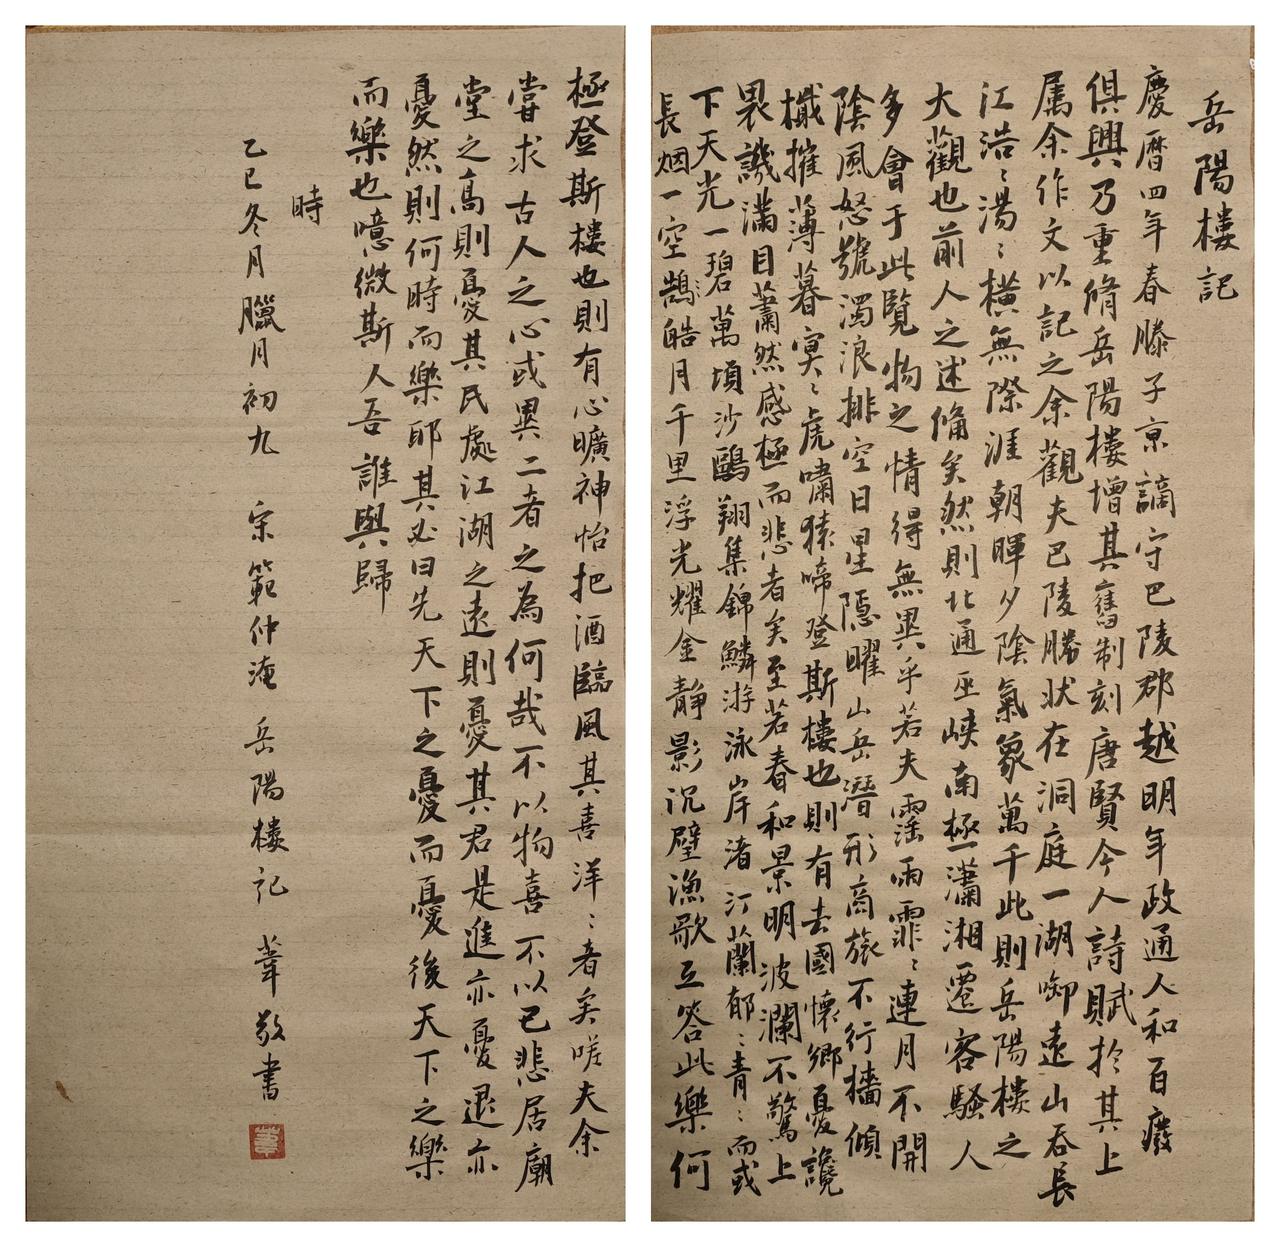 岳陽樓記
慶曆四年春滕子京謫守巴陵郡越明年政通人和百廢
俱興乃重脩岳陽樓增其舊制刻唐賢今人詩賦於其上
属余作文以記之余觀夫巴陵勝狀在洞庭一湖啣遠山吞長
江浩〻湯〻橫無際涯朝暉夕陰氣象萬千此則岳陽樓之
大觀也前人之述備矣然則北通巫峽南極瀟湘遷客騷人
多會于此覽物之情得無異乎若夫霪雨霏〻連月不開
陰風怒號濁浪排空日星隱曜山岳潛形商旅不行檣傾
檝摧薄暮冥〻虎嘯猿啼登斯樓也則有去國懷鄉憂讒
畏譏滿目蕭然感極而悲者矣至若春和景明波瀾不驚上
下天光一碧萬頃沙鷗翔集錦鱗游泳岸渚汀蘭郁〻青〻而或
長烟一空鵠皓月千里浮光耀金静影沉璧漁歌互答此樂何
極登斯樓也則有心曠神怡把酒臨風其喜洋〻者矣嗟夫余
嘗求古人之心或異二者之為何哉不以物喜不以己悲居廟
堂之高則憂其民處江湖之遠則憂其君是進亦憂退亦
憂然則何時而樂耶其必曰先天下之憂而憂後天下之樂
而樂也噫微斯人吾誰與歸
時
乙巳冬月臘月初九 宋範仲淹 岳陽樓記 葦敬書